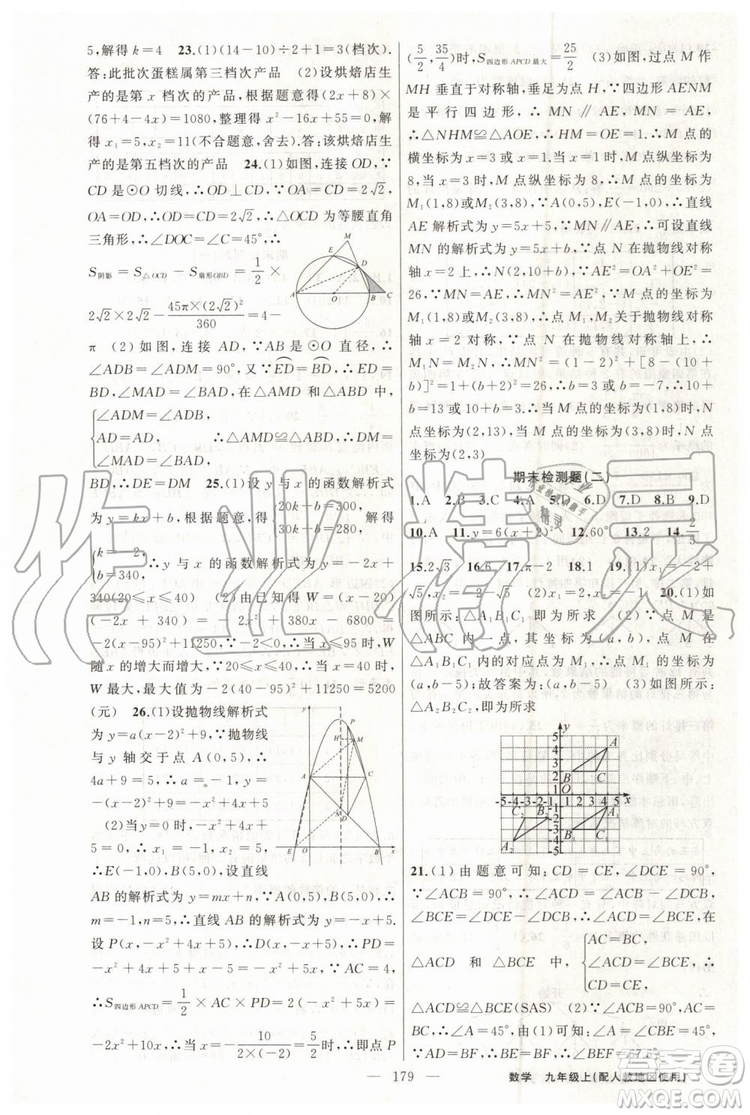 5,解得 k=4 23.(1)(14-10)÷2+1=3(档次).
答:此批次蛋糕属第三档次产品 (2)设烘焙店
生产的是第 x 档次的产品,根据题意得(2x+8)×
(76+4-4x)=1080,整理得 x²-16x+55=0,解
得 x₁=5,x₂=11(不合题意,舍去).答:该烘焙店
生产的是第五档次的产品 24.(1)如图,连接 OD,∵
CD 是⊙O 切线,∴OD⊥CD,∵OA=CD=2√2,
OA=OD,∴OD=CD=2√2,∴△OCD 为等腰直角
三角形,∴∠DOC=∠C=45°,∴
S阴影=S△OCD-S扇形OBD=1/2×
2√2×2√2-45π×(2√2)²/360=4-
π (2)如图,连接 AD,∵AB 是⊙O 直径,∴
∠ADB=∠ADM=90°,又∵ED=BD,∴ED=
BD,∠MAD=∠BAD,在△AMD 和△ABD 中,
{∠ADM=∠ADB,
AD=AD,
∠MAD=∠BAD,
∴△AMD≌△ABD,∴DM=
BD,∴DE=DM 25.(1)设 y 与 x 的函数解析式
为 y=kx+b,根据题意,得{20k+b=300,
30k+b=280,解得
{k=-2,
b=340,
∴y 与 x 的函数解析式为 y=-2x+
340(20≤x≤40) (2)由已知得 W=(x-20)
(-2x+340)=-2x²+380x-6800=
-2(x-95)²+11250,∵-2<0,∴当x≤95时,W
随 x 的增大而增大,∵20≤x≤40,∴当 x=40 时,
W 最大,最大值为-2(40-95)²+11250=5200
(元) 26.(1)设抛物线解析式
为 y=a(x-2)²+9,∵抛物线
与 y 轴交于点 A(0,5),∴
4a+9=5,∴a=-1,y=
-(x-2)²+9=-x²+4x+5
(2)当 y=0 时,-x²+4x+5
=0,∴x₁=-1,x₂=5,
∴E(-1,0),B(5,0),设直线
AB 的解析式为 y=mx+n,∴
m=-1,n=5,∴直线 AB 的解析式为 y=-x+5.
设 P(x,-x²+4x+5),∴D(x,-x+5),∴PD=
-x²+4x+5+x-5=-x²+5x,∵AC=4,
∴S四边形APCD=1/2×AC×PD=2(-x²+5x)=
-2x²+10x,∴当 x=-10/(2×(-2))=5/2 时,∴即点 P
(5/2,35/4)时,S四边形APCD最大=25/2 (3)如图,过点 M 作
MH 垂直于对称轴,垂足为点 H,∵四边形 AENM
是平行四边形,∴MN∥AE,MN=AE,∴
△NHM≌△AOE,∴HM=OE=1,∴M 点的
横坐标为 x=3 或 x=1,当 x=1 时,M 点纵坐标为
8,当 x=3 时,M 点纵坐标为 8,∴M 点的坐标为
M₁(1,8)或 M₂(3,8),∵A(0,5),E(-1,0),∴直线
AE 解析式为 y=5x+5,∵MN∥AE,∴设直线
MN 的解析式为 y=5x+b,∵点 N 在抛物线对称
轴 x=2 上,∴N(2,10+b),∵AE²=OA²+OE²=
26,∵MN=AE,∴MN²=AE²,∵M 点的坐标为
M₁(1,8)或 M₂(3,8),∴点 M₁,M₂ 关于抛物线对称
轴 x=2 对称,∵点 N 在抛物线对称轴上,∴
M₁N=M₂N,∴MN²=(1-2)²+[8-(10+
b)]²=1+(b+2)²=26,∴b=3 或 b=-7,∴10+b
=13 或 10+b=3,∴当 M 点的坐标为(1,8)时,N
点坐标为(2,13),当 M 点的坐标为(3,8)时,N 点
坐标为(2,3)
期末检测题(二)
1.A 2.B 3.C 4.A 5. 6.D 7.D 8.B 9.D
10.A 11.y=6(x+2)² 12.60° 13.2 14.2/3
15.2√3 16.√2 17.π-2 18.1 19.(1)x₁=-5,
(2)x₁=2, 20.(1)如
图所示:△A₁B₁C₁ 即为所求 (2)∵点 M 是
△A₁B₁C₁ 内的对应点为 M₁,∴点 M₁ 的坐标为
(a,b-5);故答案为(a,b-5) (3)如图所示:
△A₂B₂C₂,即为所求
21.(1)由题意可知:CD=CE,∠DCE=90°,
∵∠ACB=90°,∴∠ACB-∠DCB=∠DCE-
∠DCB,即∠ACD=∠BCE,在
△ACD 和 △BCE 中,{AC=BC,
∠ACD=∠BCE,
CD=CE,
∴△ACD≌△BCE(SAS) (2)∵∠ACB=90°,
AC=BC,∴∠A=45°,由(1)可知:
∠A=∠CBE=45°,∵AD=BF,∴BE=BF,∴
— 179 —
数学 九年级上(配人教地区使用)
作业精灵
答案圈